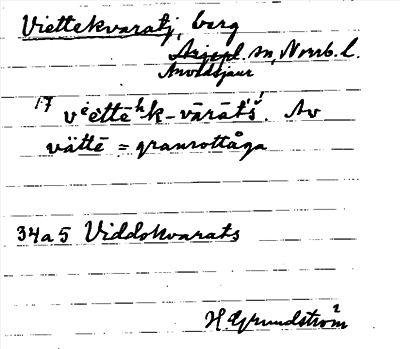 Viettekvaratj, berg
Arjepl. sn, Norrb. l.
Arvidsjaur
17 viēttē ͪk-vārāt́š́. Av
vättē = granrottåga
34a5 Viddokvarats
H. Grundström